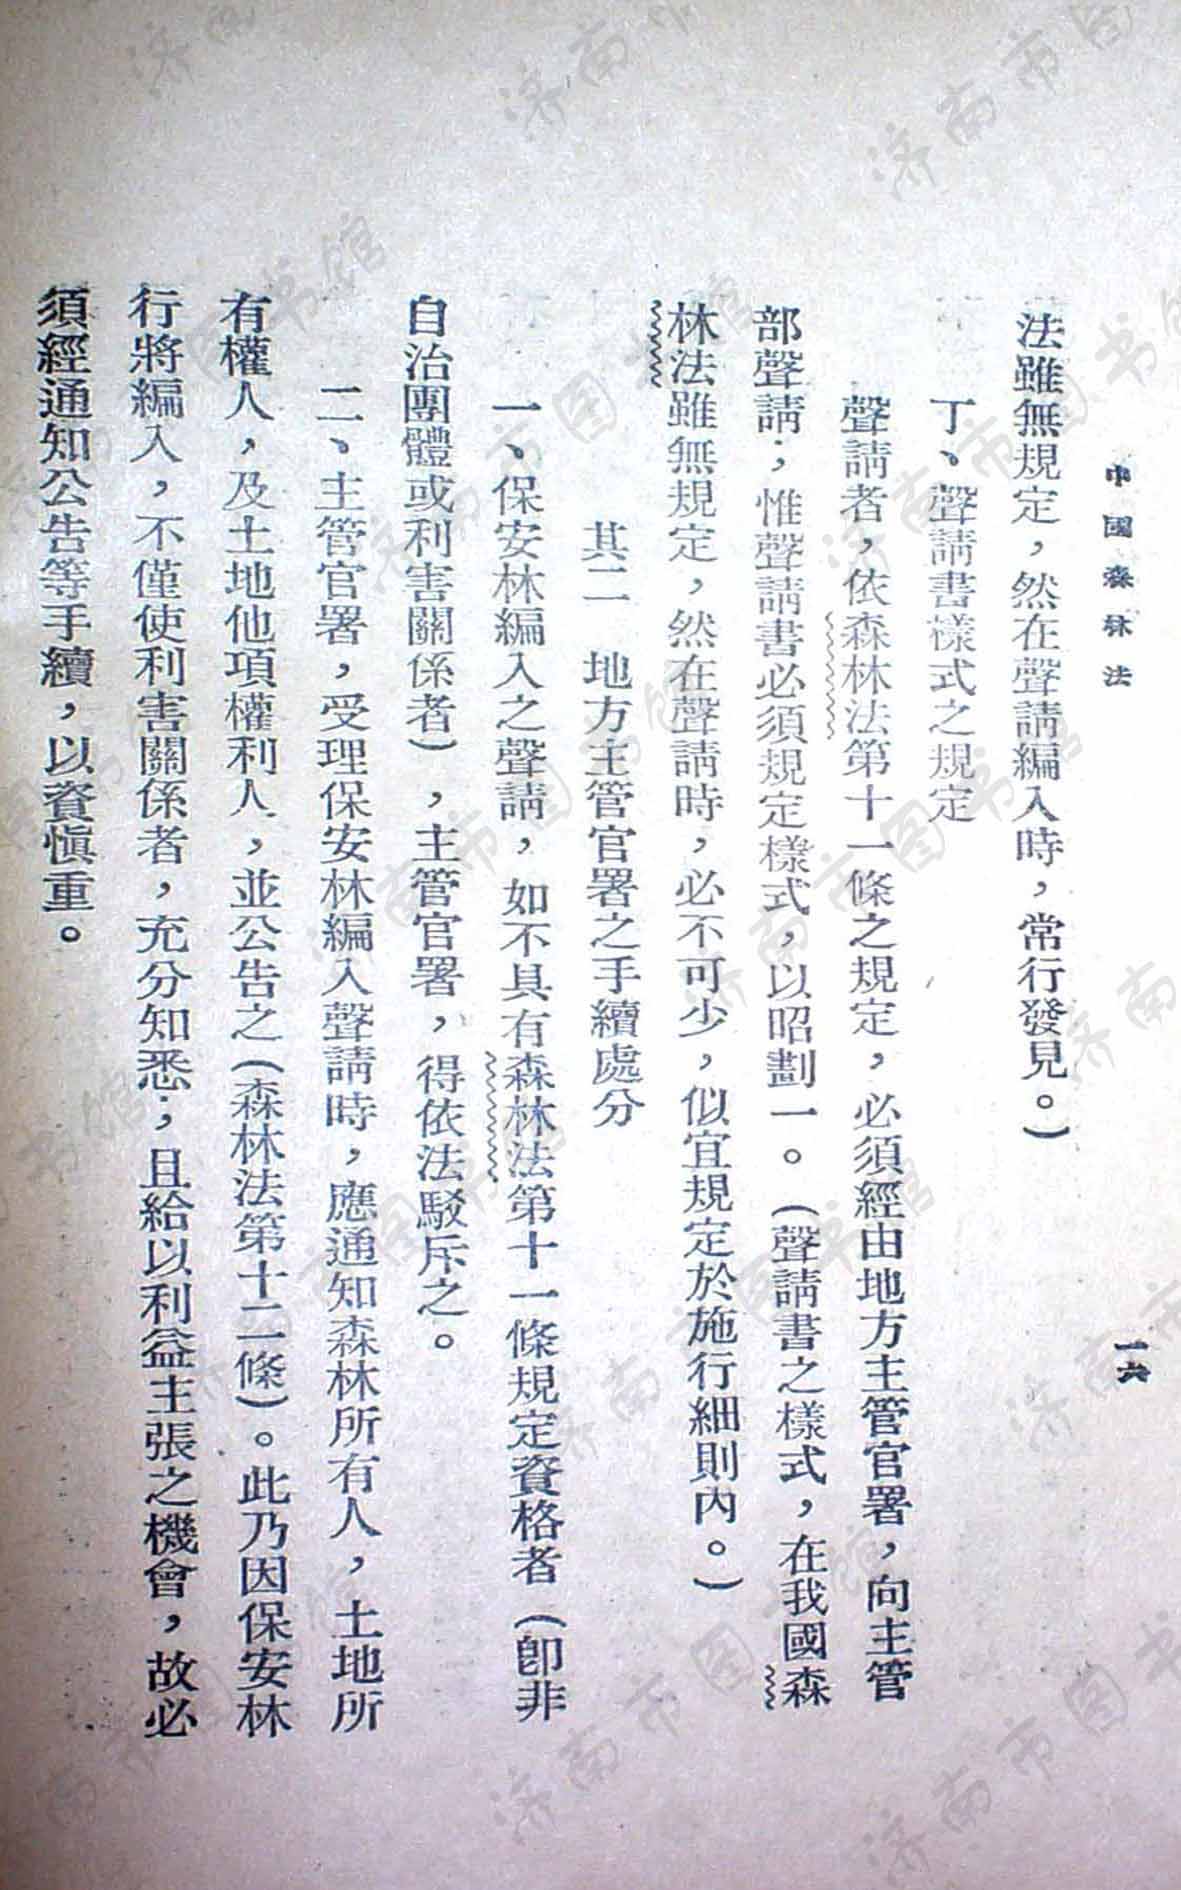 中國森林法
一六
法雖無規定，然在聲請編入時，常行發見。）
丁、聲請書樣式之規定
聲請者，依森林法第十一條之規定，必須經由地方主管官署，向主管
部聲請，惟聲請書必須規定樣式，以昭劃一。（聲請書之樣式，在我國森
林法雖無規定，然在聲請時，必不可少，似宜規定於施行細則內。）
其二　地方主管官署之手續處分
一、保安林編入之聲請，如不具有森林法第十一條規定資格者（卽非
自治團體或利害關係者），主管官署，得依法駁斥之。
二、主管官署，受理保安林編入聲請時，應通知森林所有人，土地所
有權人，及土地他項權利人，並公告之（森林法第十二條）。此乃因保安林
行將編入，不僅使利害關係者，充分知悉，且給以利益主張之機會，故必
須經通知公告等手續，以資愼重。
济南市图书馆